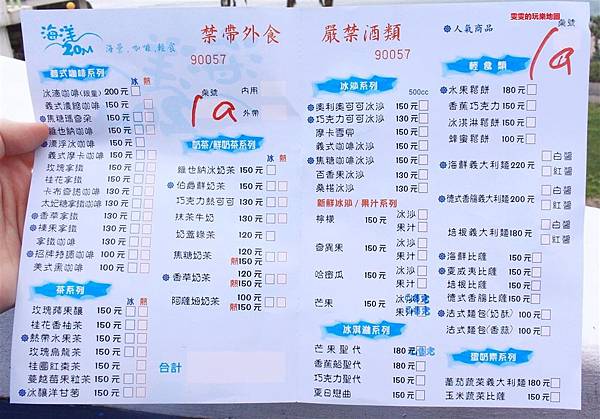 海洋20M
海景.咖啡.輕食
禁帶外食
嚴禁酒類
90057
90057
雯雯的玩樂地圖
桌號
1a
人氣商品
桌號
內用
外帶
1a
義式咖啡系列
冰 熱
冰滴咖啡(限量) 200元
義式濃縮咖啡 150元
焦糖瑪奇朵 150元
維也納咖啡 150元
漂浮冰咖啡 150元
義式摩卡咖啡 150元
玫瑰拿鐵 150元
桂花拿鐵 150元
卡布奇諾咖啡 130元
太妃糖拿鐵 130元
香草拿鐵 130元
榛果拿鐵 130元
拿鐵咖啡 130元
招牌特調咖啡 100元
美式黑咖啡 100元
茶系列
冰 熱
玫瑰蘋果釀 150元
桂花香柚茶 150元
熱帶水果茶 150元
玫瑰烏龍茶 150元
桂圓紅棗茶 150元
蔓越莓果粒茶 150元
冰釀洋甘菊 150元
奶茶/鮮奶茶系列
維也納冰奶茶 150元
伯爵鮮奶茶 150元
巧克力熱可可 150元
抹茶牛奶 150元
奶蓋綠茶 120元
焦糖奶茶 120元
熱150元
香草奶茶 120元
熱150元
阿薩姆奶茶 100元
熱150元
合計
冰沙系列
500cc
奧利奧可可冰沙 150元
巧克力可可冰沙 130元
摩卡雪泥 150元
義式咖啡冰沙 150元
焦糖咖啡冰沙 150元
百香果冰沙 130元
桑椹冰沙 130元
新鮮冰沙/果汁系列
檸檬 150元 冰沙
果汁
奇異果 150元 冰沙
果汁
哈密瓜 150元 冰沙
果汁
芒果 150元
冰淇淋系列
芒果聖代 180元
香蕉船聖代 150元
巧克力聖代 150元
夏日戀曲 150元
輕食類
水果鬆餅 180元
香蕉巧克力 150元
冰淇淋鬆餅 150元
蜂蜜鬆餅 100元
海鮮義大利麵 220元 白醬
紅醬
德式香腸義大利麵 200元
培根義大利麵 180元 白醬
紅醬
海鮮比薩 150元
夏威夷比薩 150元
培根比薩 150元
德式香腸比薩 150元
法式麵包(奶酥) 100元
法式麵包(香蒜) 100元
蛋奶素系列
蕃茄蔬菜義大利麵 180元
玉米蔬菜比薩 150元